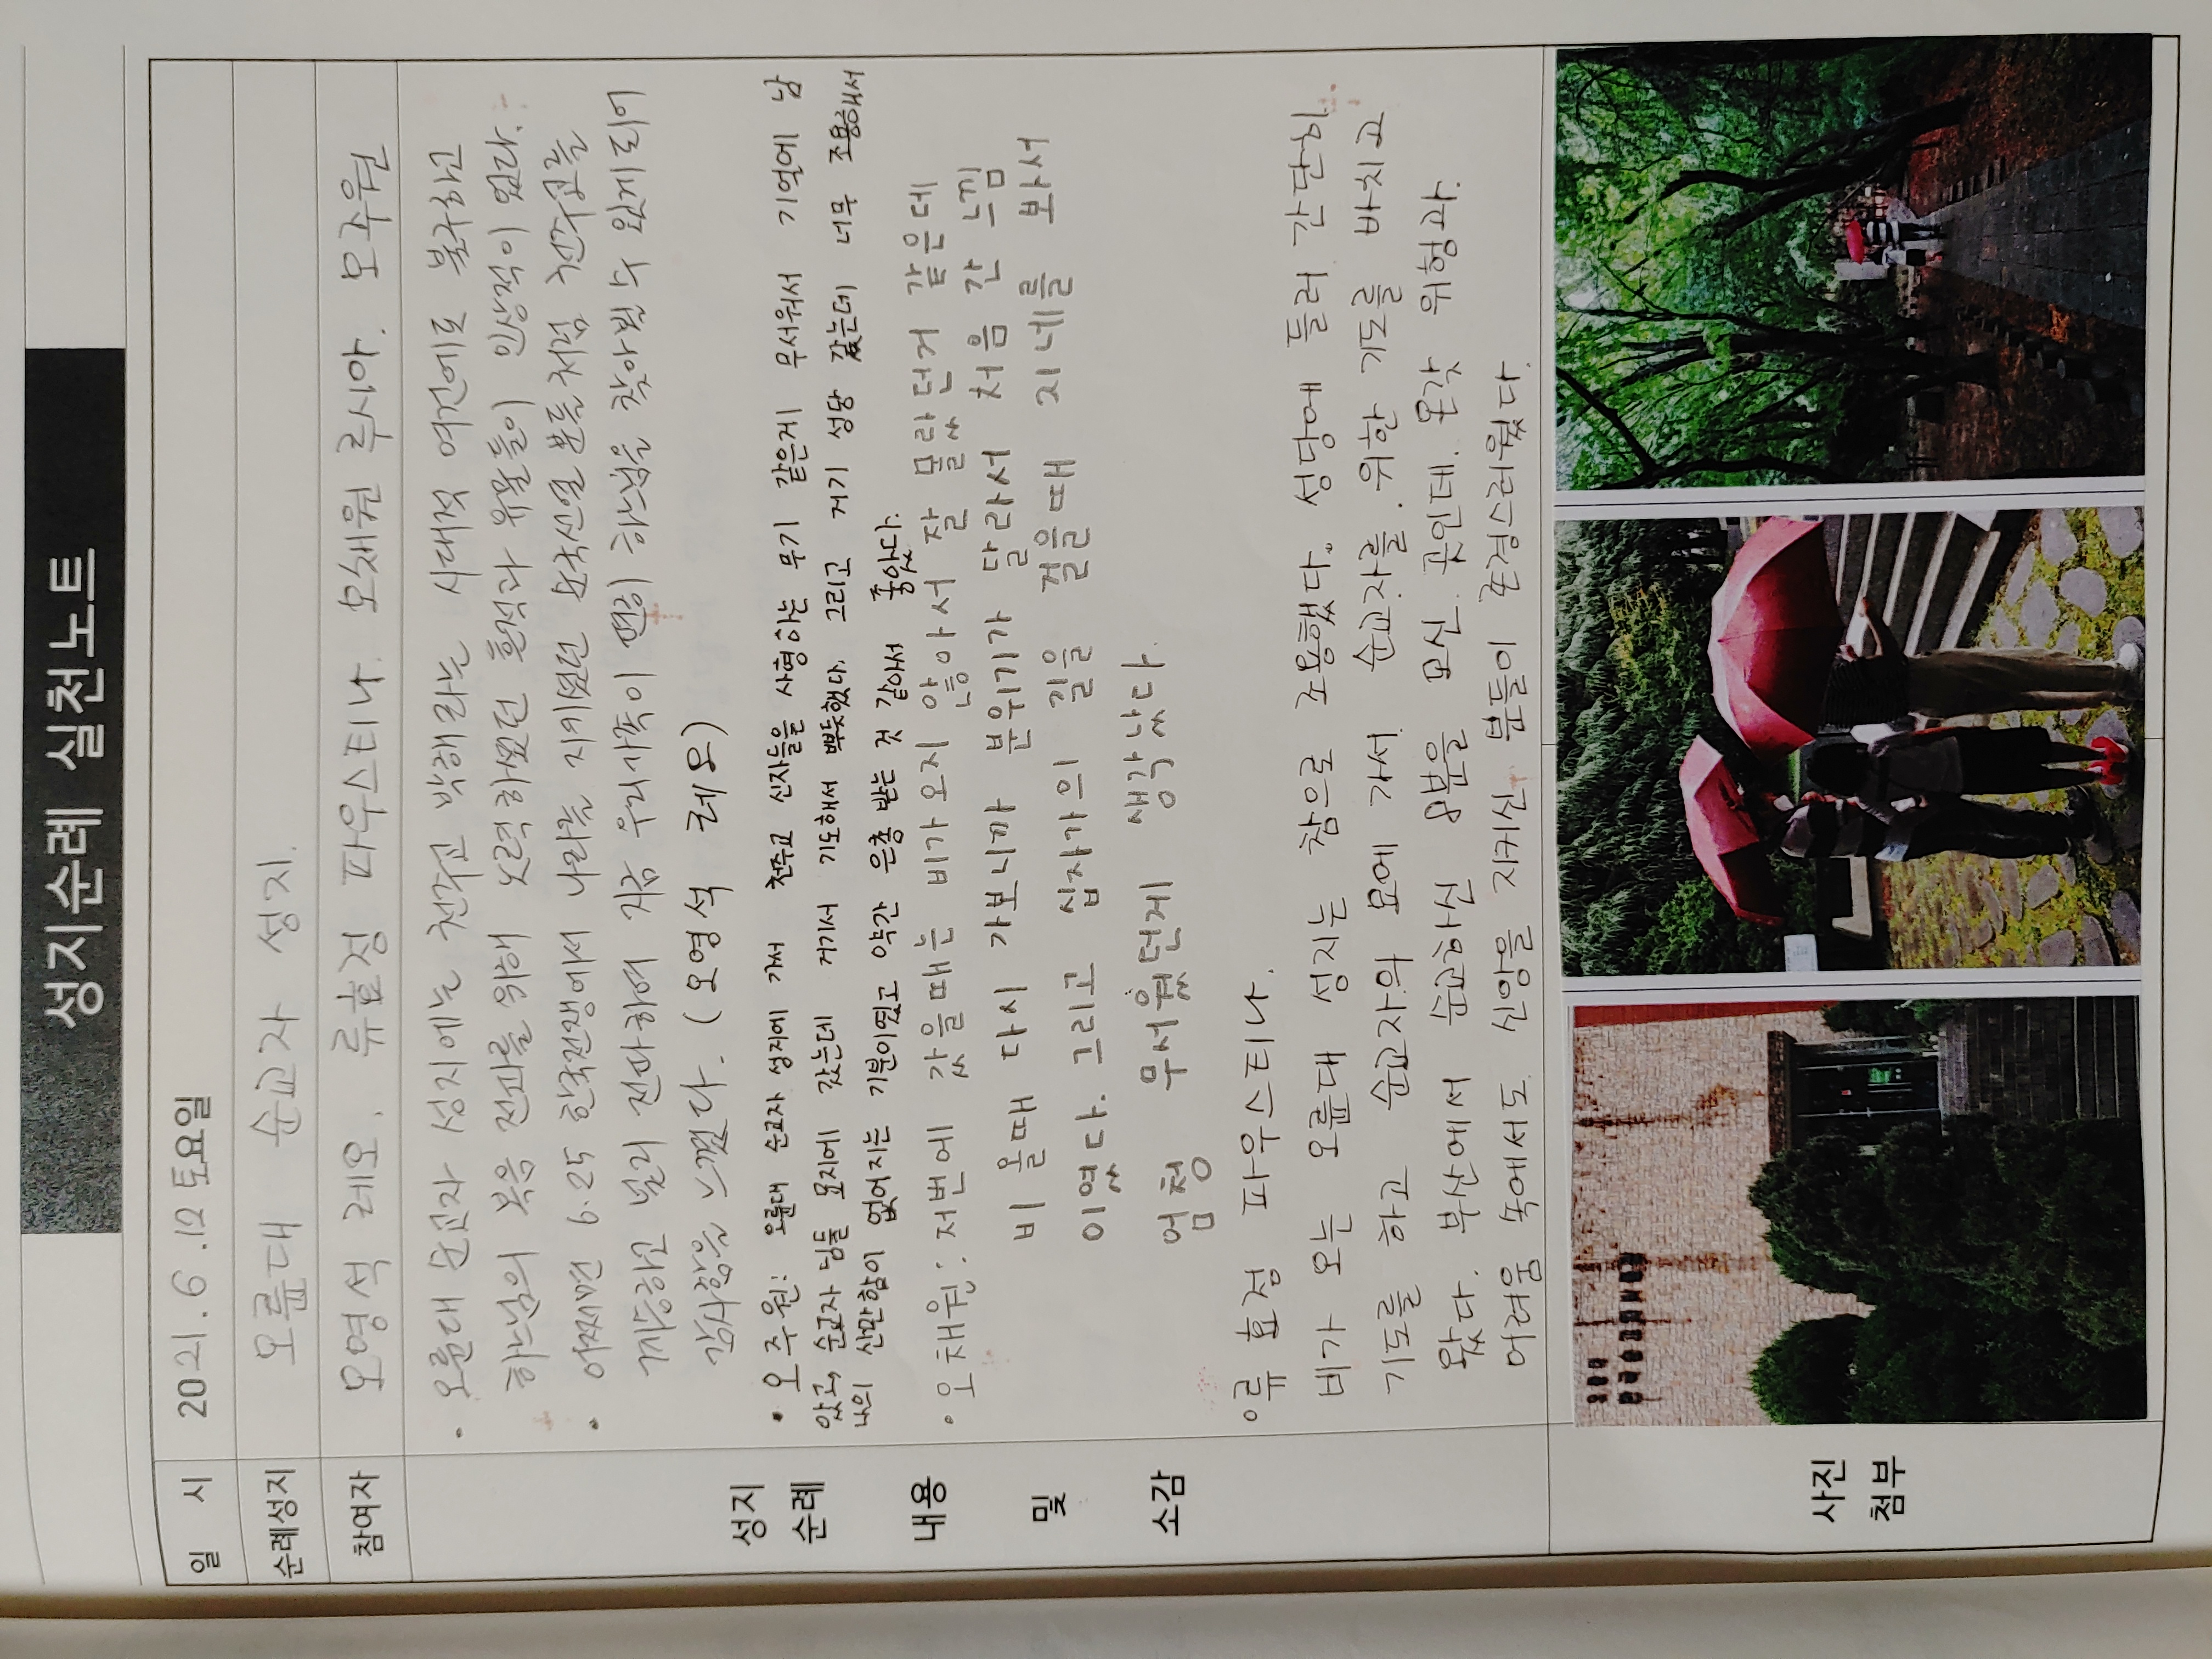 성지순례 실천노트
일 시 2021. 6. 12 토요일
순례성지 오륜대 순교자 성지.
참여자 오영석 레오. 류효정 파우스티나. 오채원 루시아. 오주원
· 오륜대 순교자 성지에는 천주교 박해라는 시대적 여건에도 불구하고
하느님의 복음 전파를 위해 노력하셨던 흔적과 유물들이 인상적이었다.
· 어쩌면 6.25 한국전쟁에서 나라를 지키셨던 순국선열 분들처럼 천주교를
계승하고 널리 전파하여 지금 우리가족이 편히 하느님을 찾아뵐 수 있게되어
감사함을 느꼈다. (오영석 레오)
· 오주원: 오륜대 순교자 성지에 가서 천주교 신자들을 사형하는 무기 같은게 무서워서 기억에 남
았고, 순교자 님들 묘지에 갔는데 거기서 기도해서 뿌듯했다. 그리고 거기 성당 갔는데 너무 조용해서
나의 산만함이 없어지는 기분이였고 약간 은총 받는 것 같아서 좋았다.
· 오채원: 저번에 갔을때는 비가오지 않아서 잘 몰랐던거 같은데
비 올때 다시 가보니까 분위기가 달라서 처음 간 느낌
이였다. 그리고 십자가의 길을 걸을때 지네를 봐서
엄청 무서웠던게 생각났다.
성지
순례
내용
및
소감
◦류효정 파우스티나.
비가 오는 오륜대 성지는 참으로 조용했다. 성당에 들러 간단히
기도를 하고 순교자의 묘에 가서 순교자를 위한 기도를 바치고
왔다. 부산에서 순교하신 8분을 모신 곳인데. 온갖 위험과
어려움 속에서도 신앙을 지키신 분들이 존경스러웠다.
오륜대
한국순교자박물관
사진
첨부